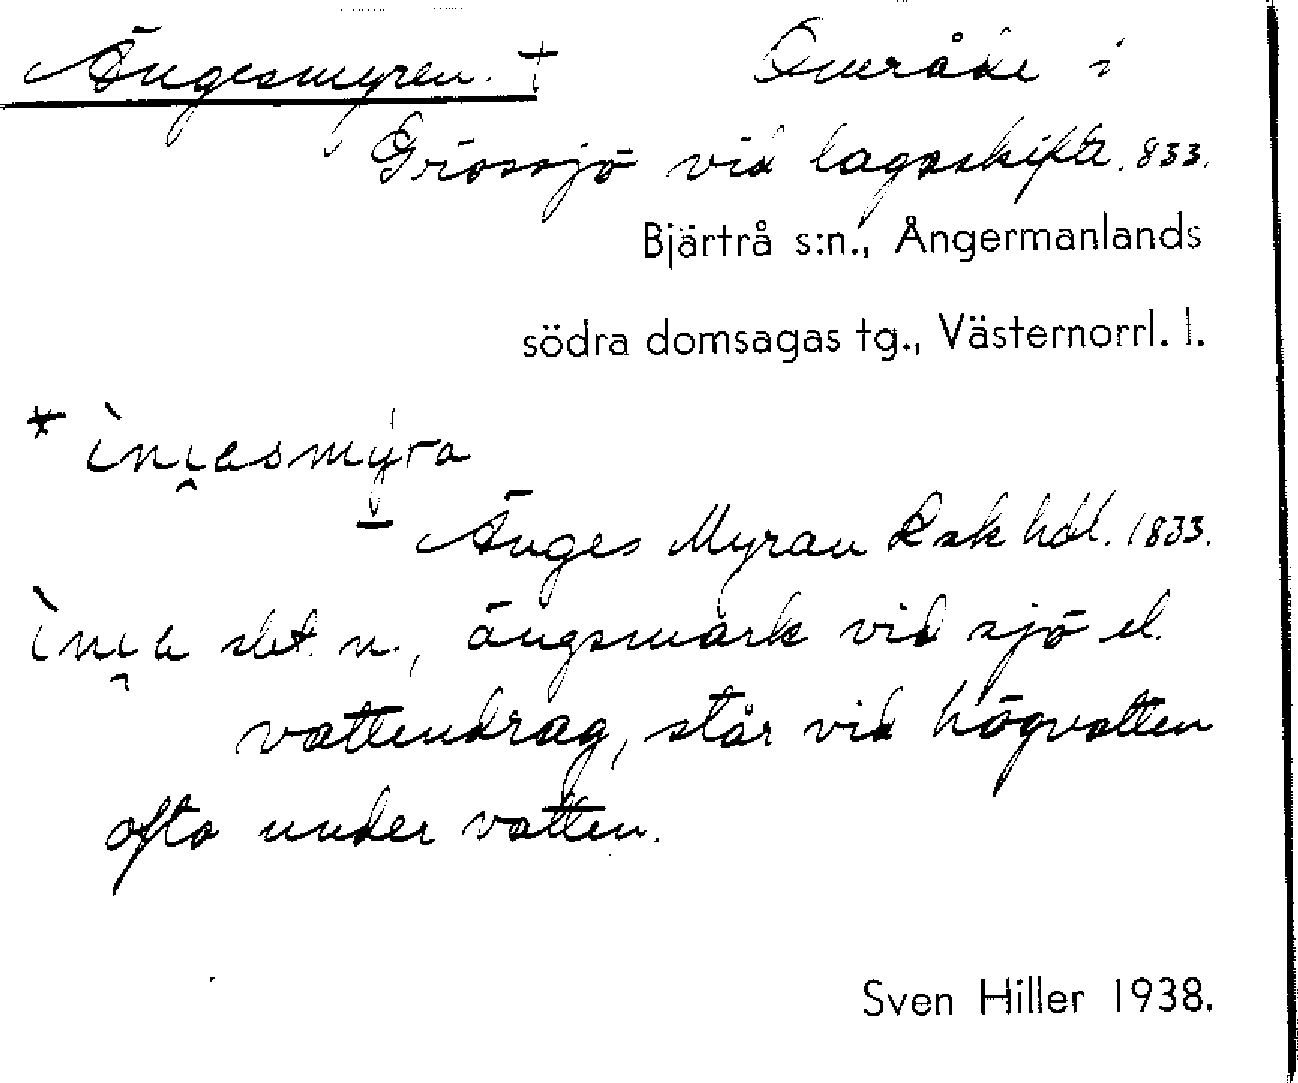 Ängesmyren. † Område i
Grössjö vid lagaskifte. 833.
Bjärtrå s:n., Ångermanlands
södra domsagas tg., Västernorrl. l.
* ìnjasmýra
– Änges Myran Rsk hdl. 1833.
ìnja sbt. n., ängsmark vid sjö el.
vattendrag, står vid högvatten
ofta under vatten.
Sven Hiller 1938.